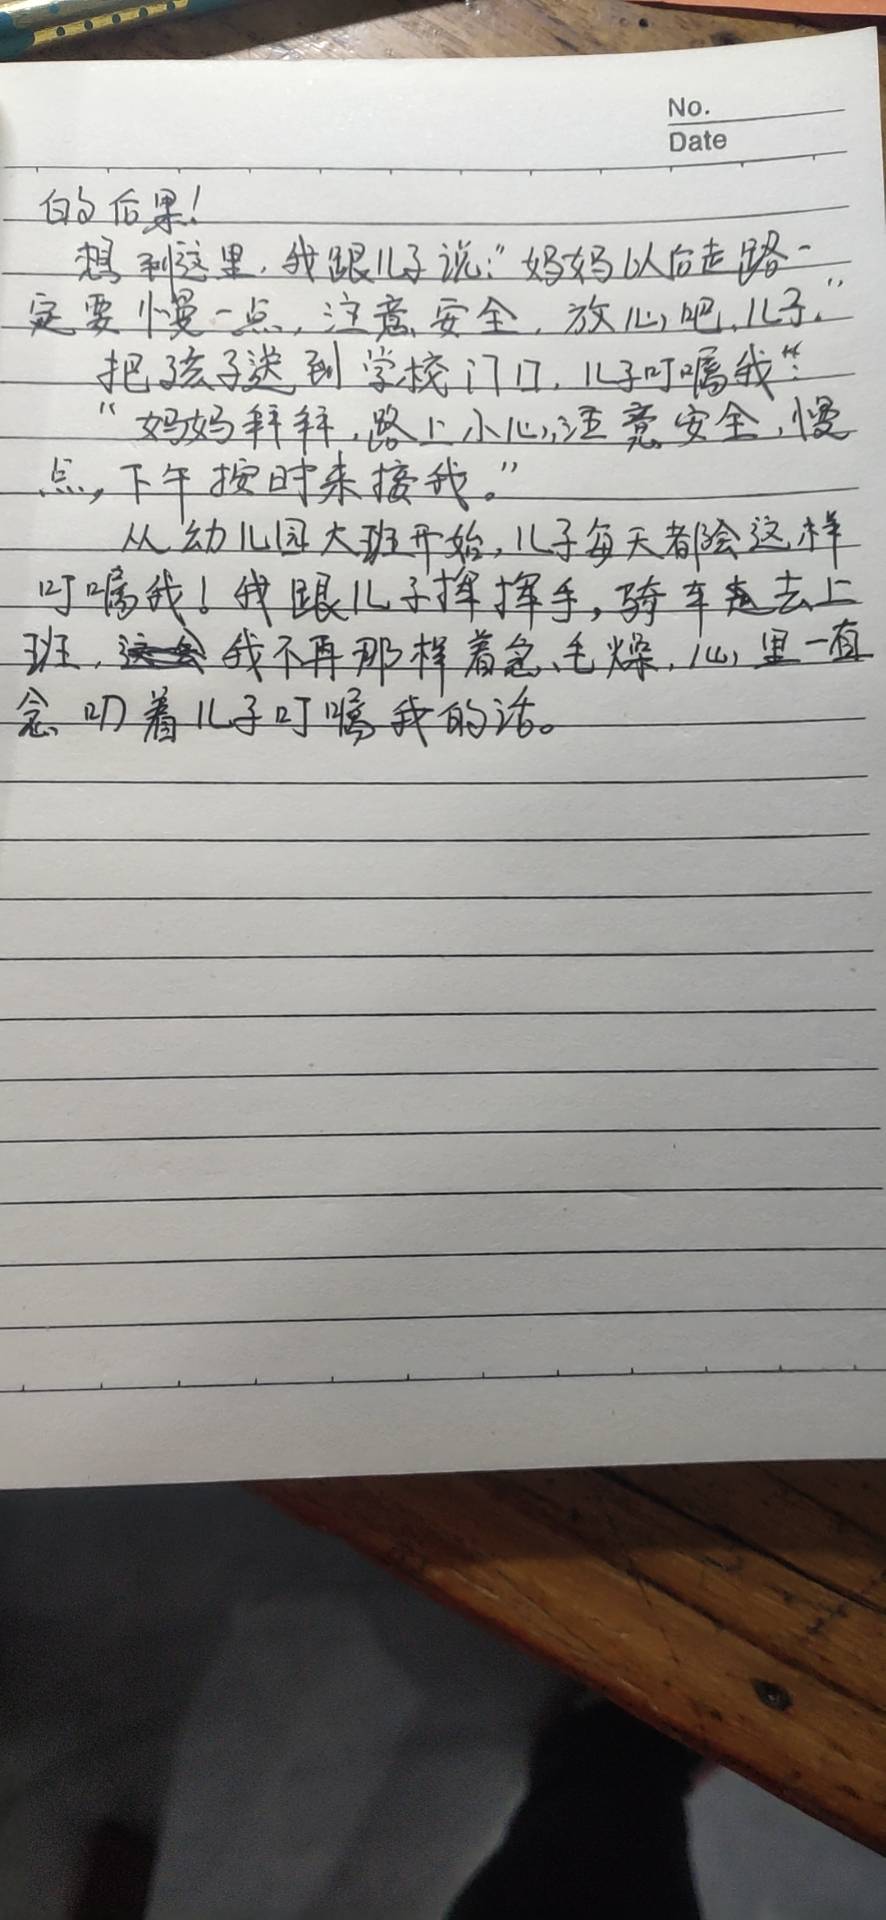 No.
Date
的后果！
想到这里，我跟儿子说：“妈妈以后走路一
定要慢一点，注意安全，放心吧，儿子。”
把孩子送到学校门口，儿子叮嘱我“：
“妈妈拜拜，路上小心，注意安全，慢
点，下午按时来接我。”
从幼儿园大班开始，儿子每天都会这样
叮嘱我！我跟儿子挥挥手，骑车去上
班，我不再那样着急、毛燥，心里一直
念叨着儿子叮嘱我的话。